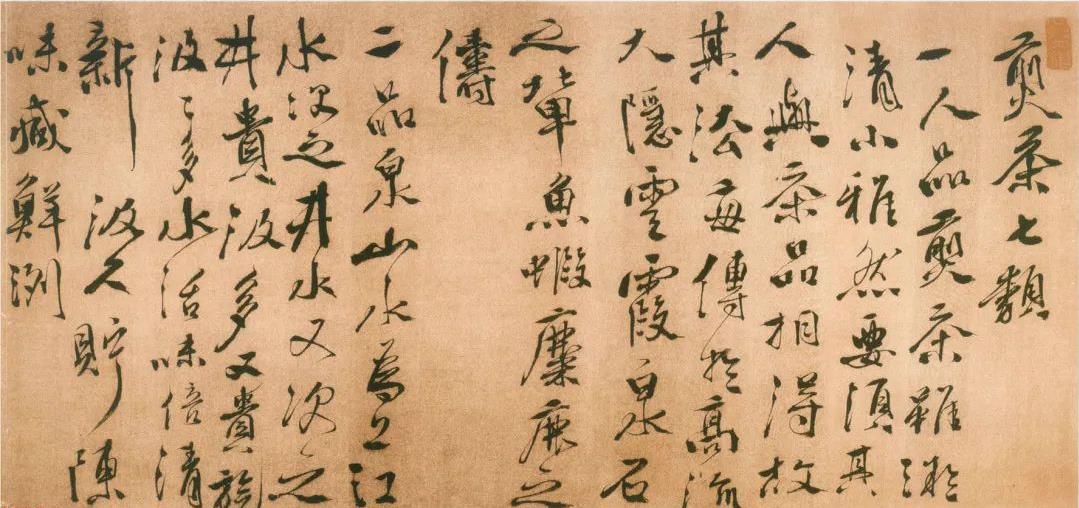 煎茶七類
一人品煎茶雖凝
清小雅然要須其
人與茶品相得故
其法每傳於高流
大隱雲霞泉石
之輩魚蝦麋鹿之
儔
二品泉山水為上江
水次之井水又次之
井貴汲多又貴旋
汲〻多水活味倍清
新汲久貯陳
味減鮮洌